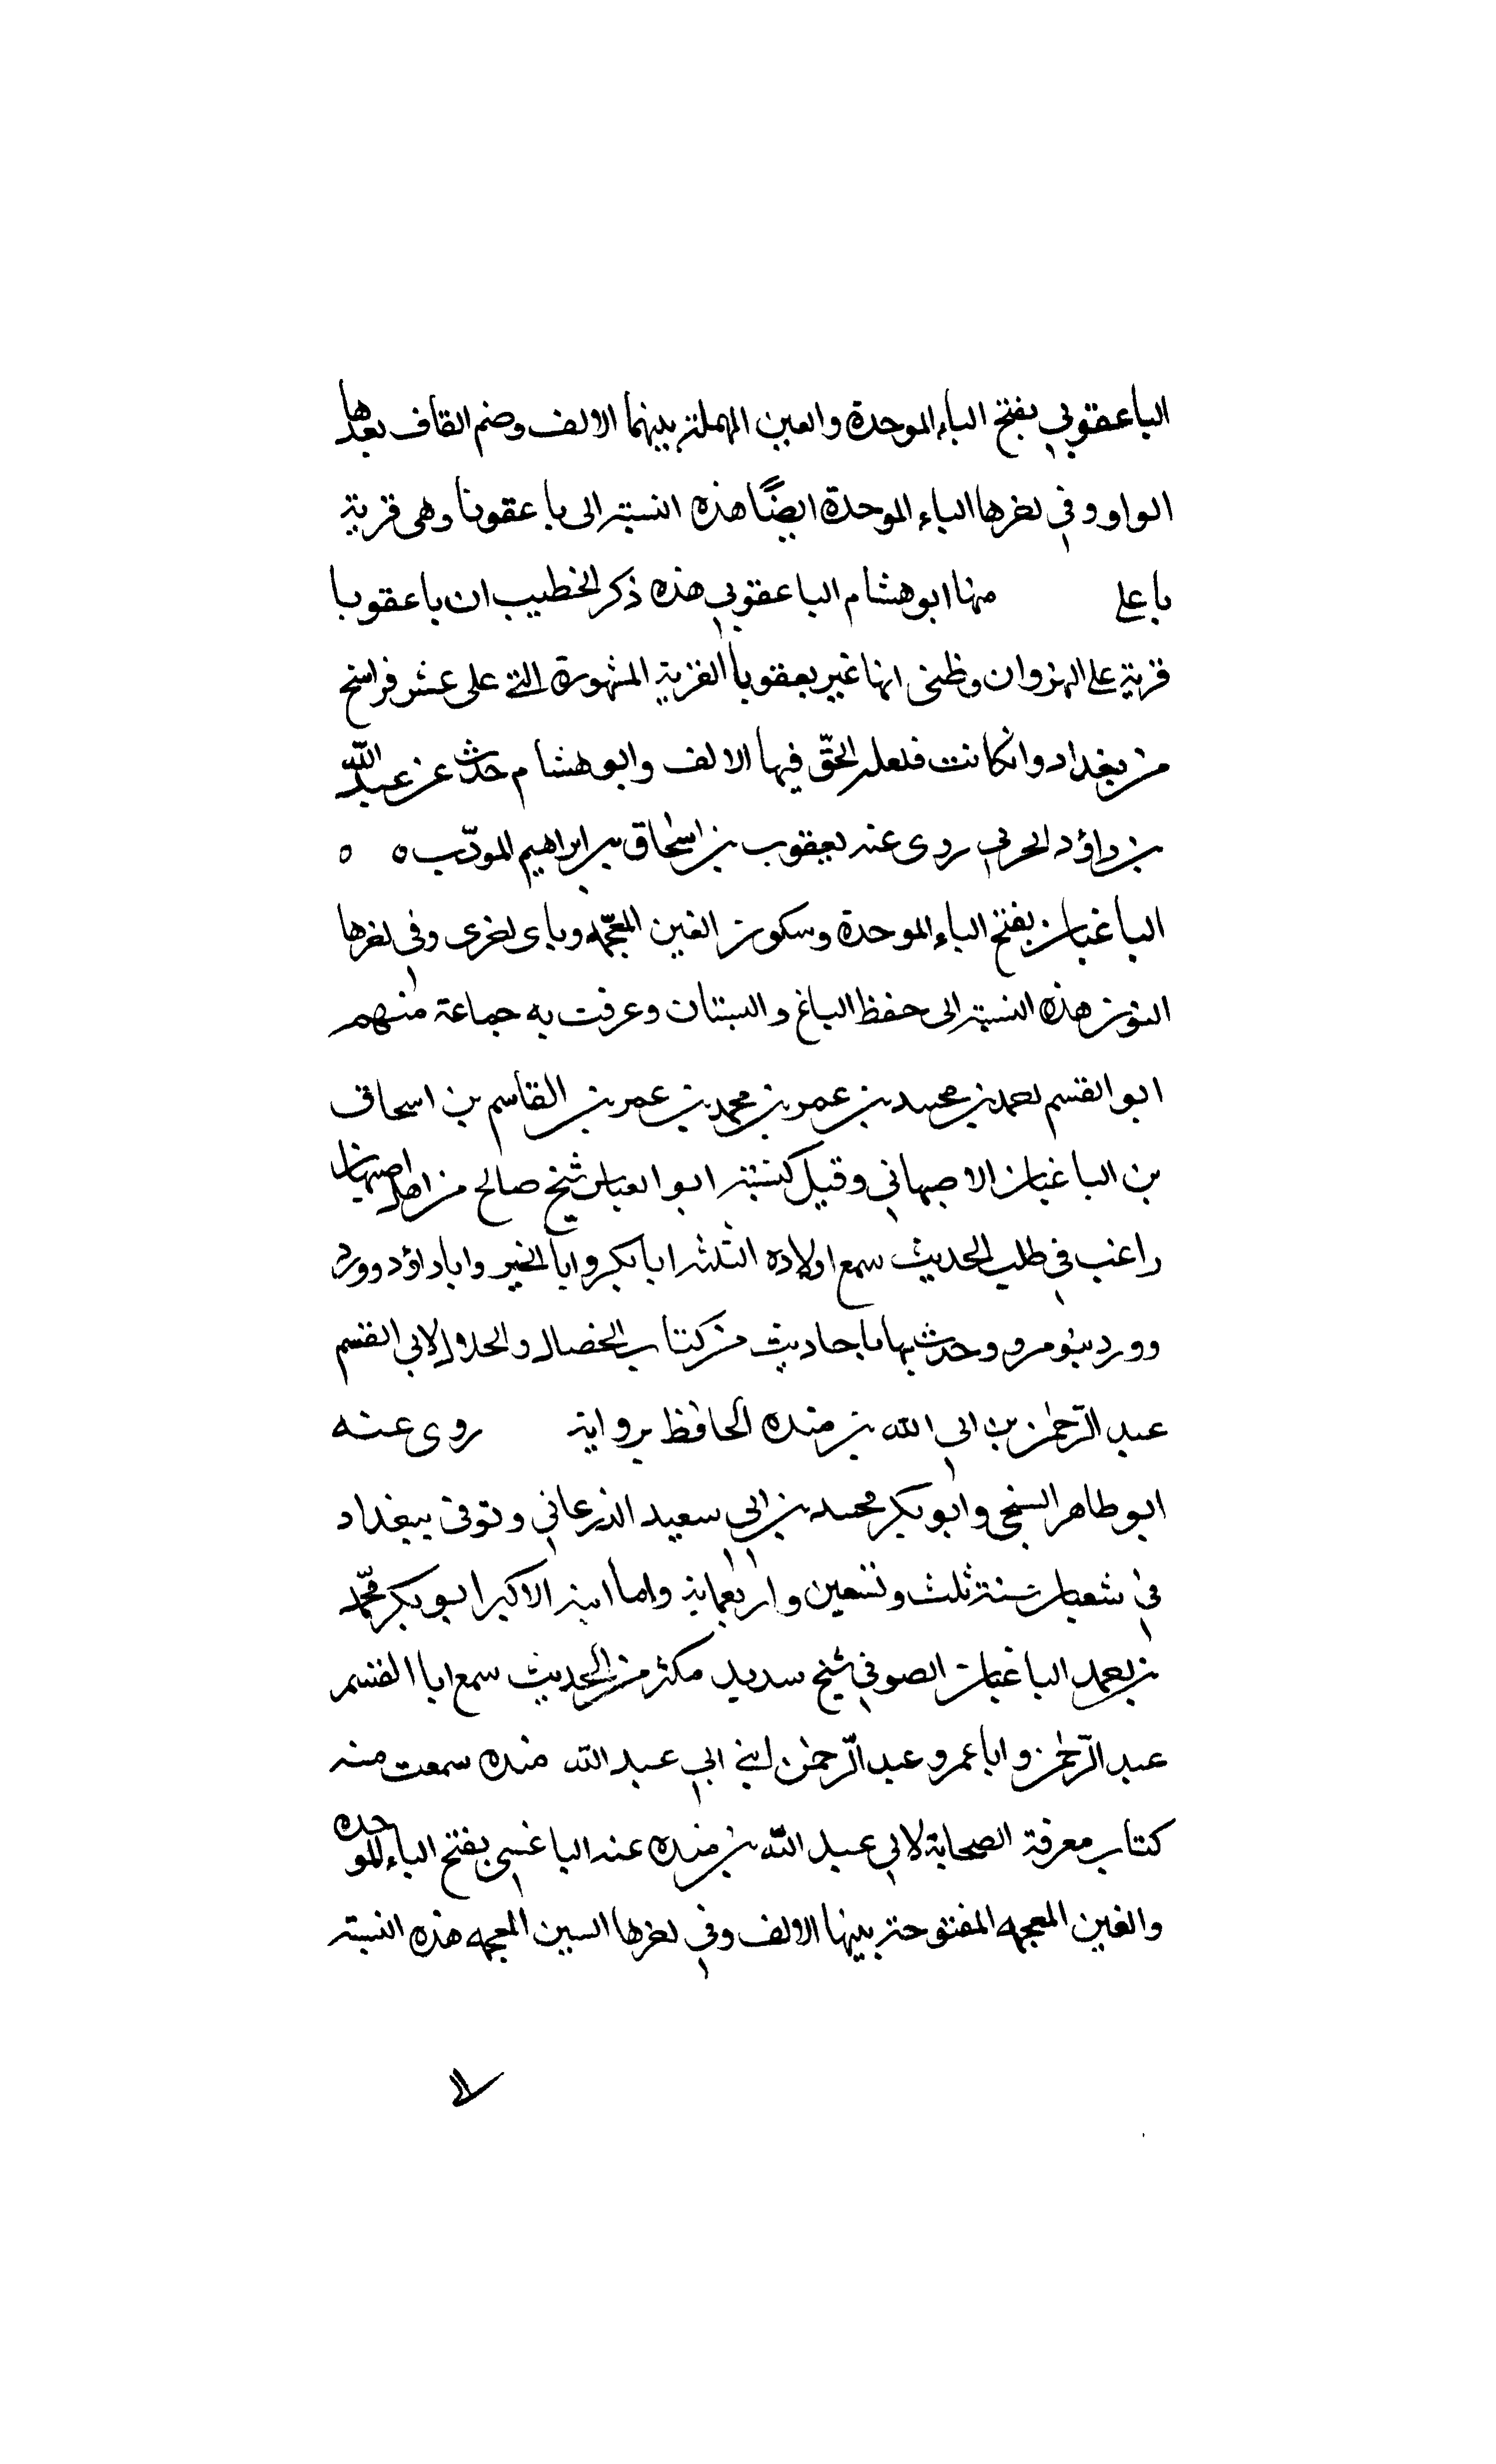 الباعقوبي بفتح الباء الموحدة والعين المهملة بينهما الالف وضم القاف بعدها
الواو وفي اخرها الباء الموحدة ايضًا هذه النسبة الى باعقوبا وهى قرية
با على منها ابو هشام الباعقوبي هذه ذكر الخطيب ان باعقوبا
قرية على النهروان وظنى انها غير بعقوبا القرية المشهورة التي على عشر فراسخ
من بغداد وان كانت فلعله الحقّ فيها الالف وابو هشام حدّث عن عبد الله
بن داؤد الحربي روى عنه يعقوب بن اسحاق بن ابراهيم المودّب ه ه
الباغبان بفتح الباء الموحدة وسكون الغين المعجّمه وباى اخرى وفي اخرها
النون هذه النسبة الى حفظ الباغ والبستان وعرفت به جماعة منهم
ابو القسم احمد بن محمد بن عمر بن محمد بن عمر بن القاسم بن اسحاق
بن الباغبان الاصبهاني وقيل كنيته ابو العباس شيخ صالح من اهل اصبهان
راغب في طلب الحديث سمع اولاده الثلثه ابا بكر وابا الخير وابا داؤد وورد
وورد بنو مرو وحدث بها باحاديث من كتاب الخصال والحلال لابي القسم
عبد الرّحمن بن ابي الله بن منده الحافظ برواية روى عنه
ابو طاهر السنجي وابو بكر محمد بن ابي سعيد الذرعاني وتوفى ببغداد
في شعبان سنة ثلث وتسعين واربعماية واما ابنه الاكبر ابو بكر محمّد
بن احمد الباغبان الصوفي شيخ سديد مكثر من الحديث سمع ابا القسم
عبد الرّحمن وابا عمرو عبد الرّحمن ابني ابي عبد الله منده سمعت منه
كتاب معرفة الصحابة لابي عبد الله بن منده عنه الباغسي بفتح الباء الموحده
والغين المعجمه المفتوحة بينها الالف وفي اخرها السين المعجمه هذه النسبة